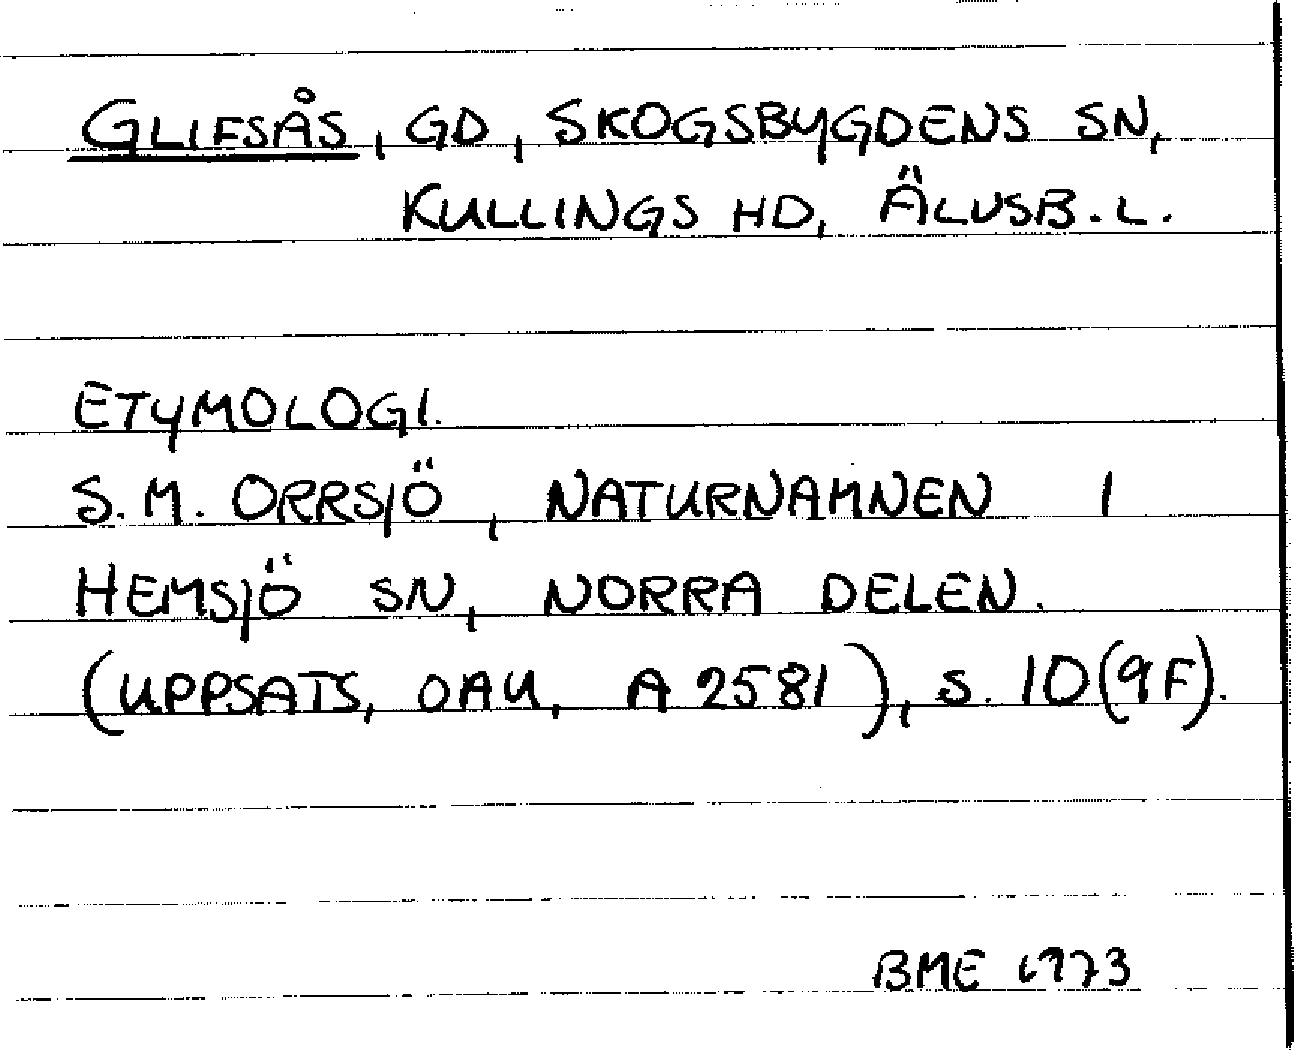 GLIFSÅS, GD, SKOGSBYGDENS SN,
KULLINGS HD, ÄLVSB. L.
ETYMOLOGI.
S. M. ORRSJÖ, NATURNAMNEN I
HEMSJÖ SN, NORRA DELEN.
(UPPSATS, OAU, A 2581), S. 10(9F).
BME 1973